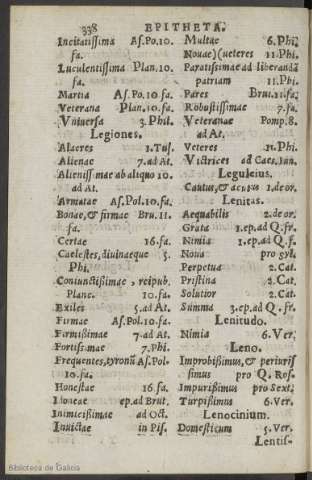 338 EPITHETA.
Incitatissima As.Po.10.
fa.
Luculentissima Plan.10.
fa.
Martia As.Po.10 fa.
Veterana Plan.10.fa.
Vniuersa 3.Phil.
Legiones.
Alacres 1.Tus.
Alienae 7.ad At.
Alienissimae ab aliquo 10.
ad At.
Armatae As.Pol.10.fa.
Bonae, & firmae Bru.11.
fa.
Certae 16.fa.
Caelestes, diuinaeque 5.
Phi.
Coniunctißimae, reipub.
Planc. 10.fa.
Exiles 5.ad At.
Firmae As.Pol.10.fa.
Firmißimae 7.ad At.
Fortissimae 7.Phi.
Frequentes, tyronũ As.Pol-
10.fa.
Honestae 16.fa.
Idoneae ep.ad Brut.
Inimicißimae ad Oct.
Inuictae in Pis.
Multae 6.Phi.
Nouae)(ueteres 11.Phi.
Paratissimae ad liberandã
patriam 11.Phi.
Pares Brut.11.fa.
Robustissimae 7.fa.
Veteranae Pomp.8.
ad At.
Veteres 11.Phi.
Victrices ad Caes.Iun.
Leguleius.
Cautus, & acutus 1.de or.
Lenitas.
Aequabilis 2.de or.
Grata 1.ep.ad Q.fr.
Nimia 1.ep.ad Q.f.
Noua pro syl.
Perpetua 2.Cat.
Pristina 2.Cat.
Solutior 2.Cat.
Summa 3.ep.ad Q.fr.
Lenitudo.
Nimia 6.Ver.
Leno.
Improbißimus, & periuris
simus pro Q.Ros.
Impurißimus pro Sext.
Turpißimus 6.Ver.
Lenocinium.
Domesticum 5.Ver.
Lentis-
Biblioteca de Galicia